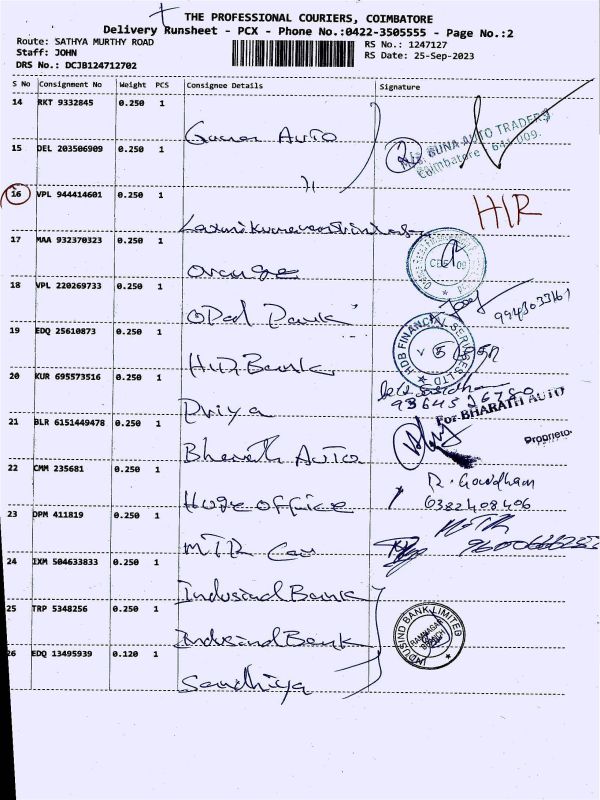 THE PROFESSIONAL COURIERS, COIMBATORE
Delivery Runsheet - PCX - Phone No.:0422-3505555 - Page No.:2
Route: SATHYA MURTHY ROAD
Staff: JOHN
DRS No.: DCJB124712702
RS No.: 1247127
RS Date: 25-Sep-2023
S No Consignment No Weight PCS Consignee Details Signature
14 RKT 9332845 0.250 1
Auto
15 DEL 203506909 0.250 1
2 GUNA AUTO TRADERS
Coimbatore - 641 009.
16 VPL 944414601 0.250 1
HIR
17 MAA 932370323 0.250 1
Orange
CBE-09
18 VPL 220269733 0.250 1
19 EDQ 25610873 0.250 1
HDB FINANCIAL SERVICES LTD
20 KUR 695573516 0.250 1
Priya
For BHARATH AUTO
21 BLR 6151449478 0.250 1
Bharath Auto
Proprietor
22 CMM 235681 0.250 1
Huge office
R. Gowdham
6382408406
23 DPM 411819 0.250 1
MTR
MTR
24 IXM 504633833 0.250 1
Indusind Bank
25 TRP 5348256 0.250 1
Indusind Bank
INDUSIND BANK LIMITED
RAMNAGAR BRANCH
26 EDQ 13495939 0.120 1
Sandhiya